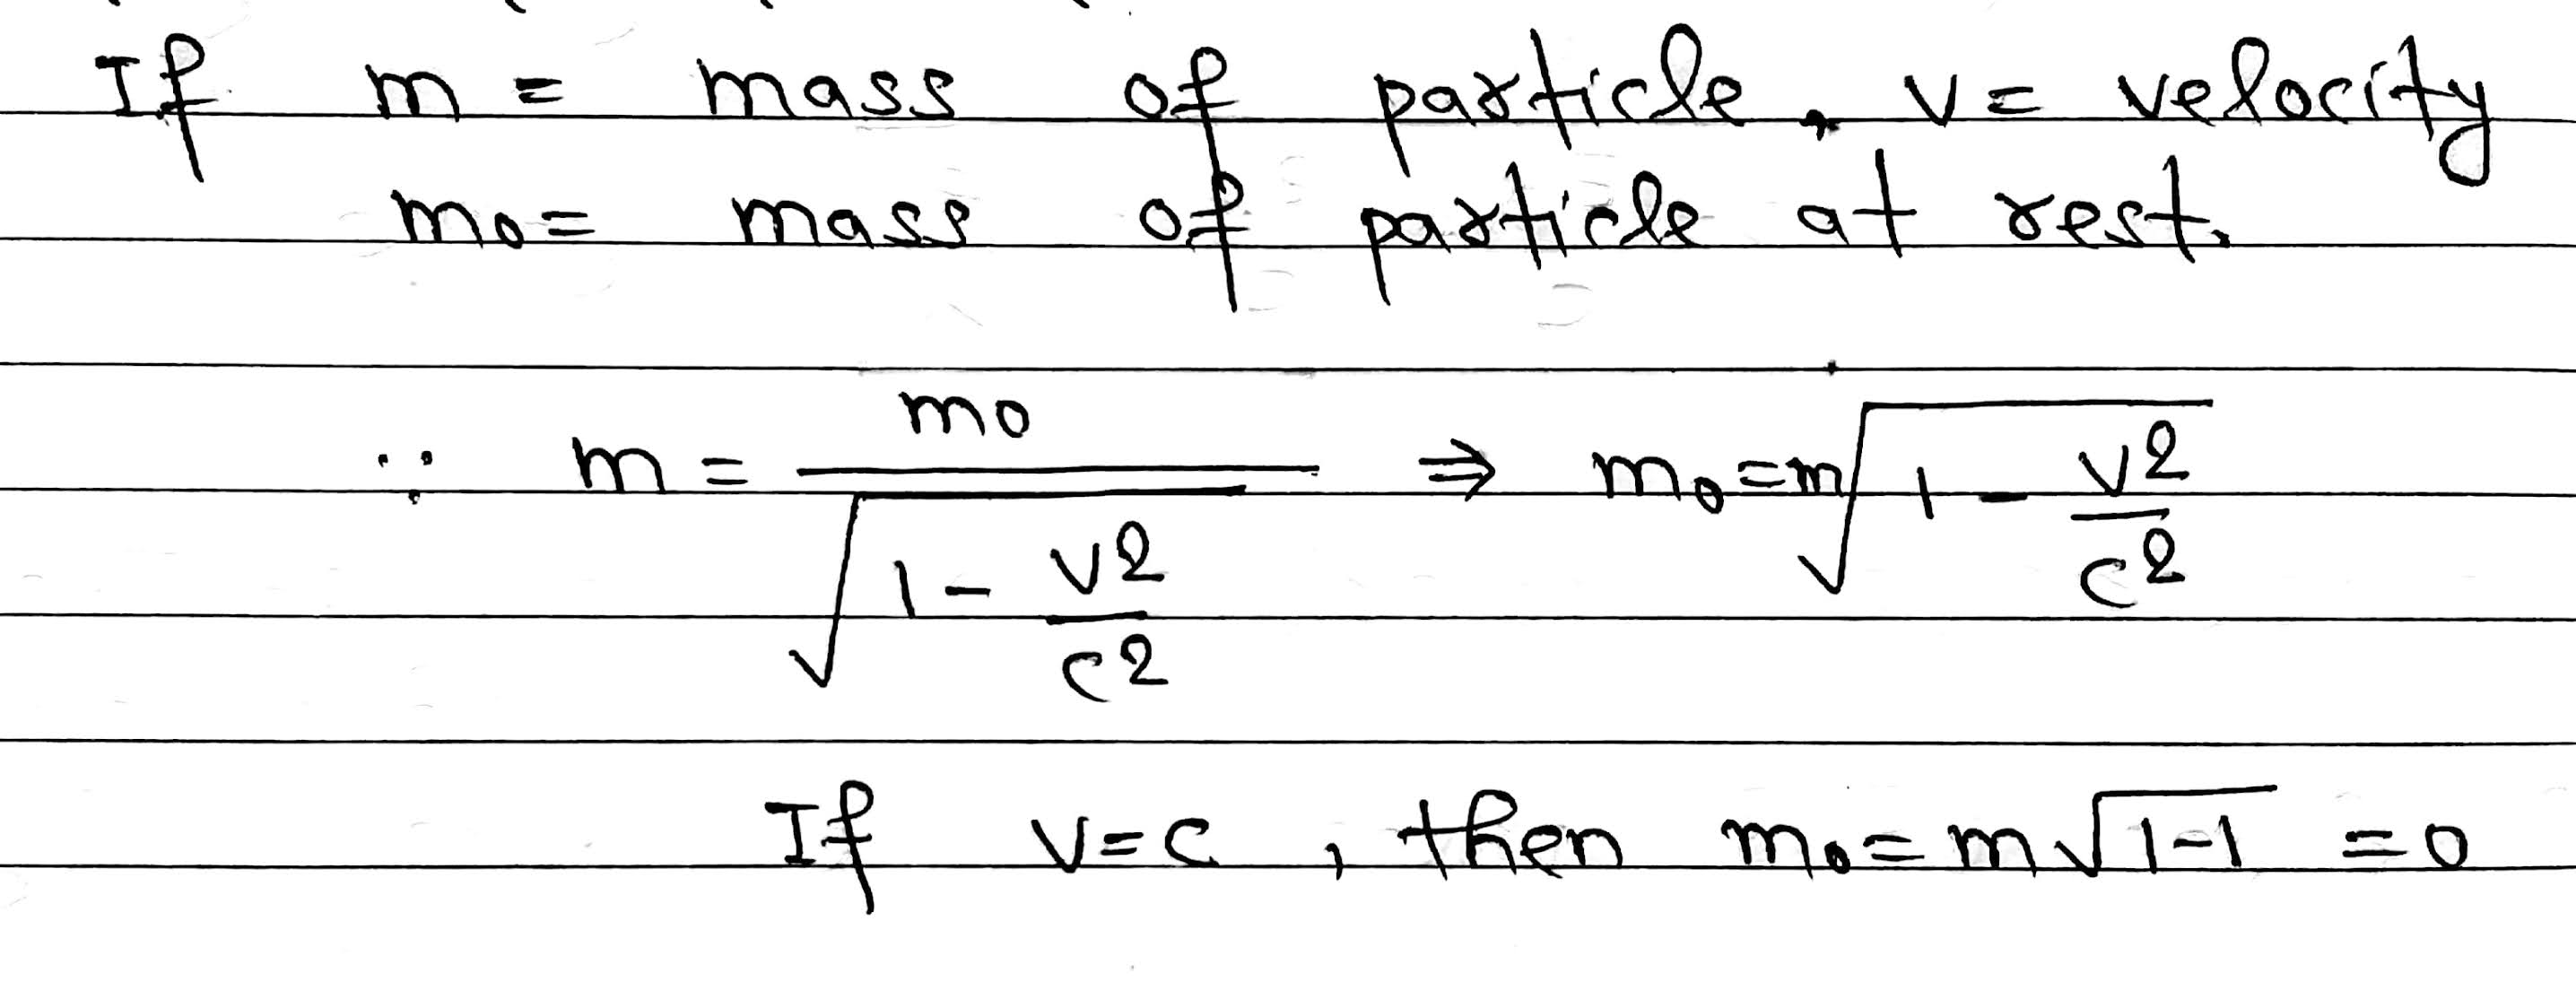 If m = mass of particle, v = velocity
m0 = mass of particle at rest.
∵ m = m0 / √(1 - v2/c2) ⇒ m0 = m√(1 - v2/c2)
If v=c, then m0 = m√(1-1) = 0